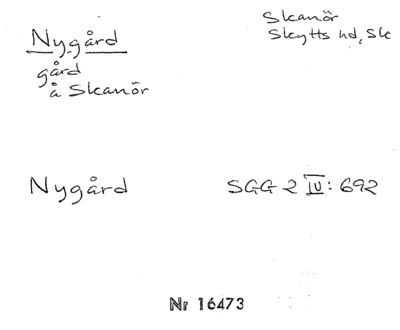 Nygård
gård
å Skanör
Skanör
Skytts hd, Sk
Nygård
SGG 2 IV: 692
Nr 16473